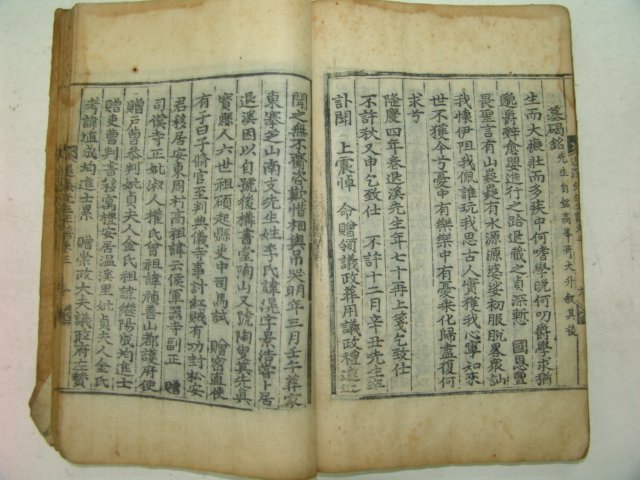 墓碣銘 先生自銘高峯奇大升叙其後
生而大癡壯而多疾中何嗜學晚何叨爵學求猶
邈爵辭愈嬰進行之跲退藏之貞深慙 國恩亶
畏聖言有山嶷嶷有水源源婆娑初服脫略衆訕
我懷伊阻我佩誰玩我思古人實獲我心寧知來
世不獲今兮憂中有樂樂中有憂乘化歸盡復何
求兮
隆慶四年春退溪先生年七十再上箋乞致仕
不許秋又申乞致仕 不許十二月辛丑先生卒
訃聞 上震悼 命贈領議政葬用議政禮遠近
聞之無不齎咨歎惜相與吊哭明年三月壬午葬家
東搴芝山南支先生姓李氏諱滉字景浩嘗卜居
退溪因以自號後構書堂陶山又號陶叟其先眞
寶縣人六世祖碩起縣吏中司馬試 贈密直使
有子曰子脩官至判典儀寺事討紅賊有功封松安
君移居安東周村高祖諱云侯軍器寺副正 贈
司僕寺正妣淑人權氏曾祖諱禎善山都護府使
贈戶曹參判妣貞夫人金氏祖諱繼陽成均進士
贈吏曹判書始寓禮安居溫溪里妣貞夫人金氏
考諱埴成均進士累 贈崇政大夫議政府左贊